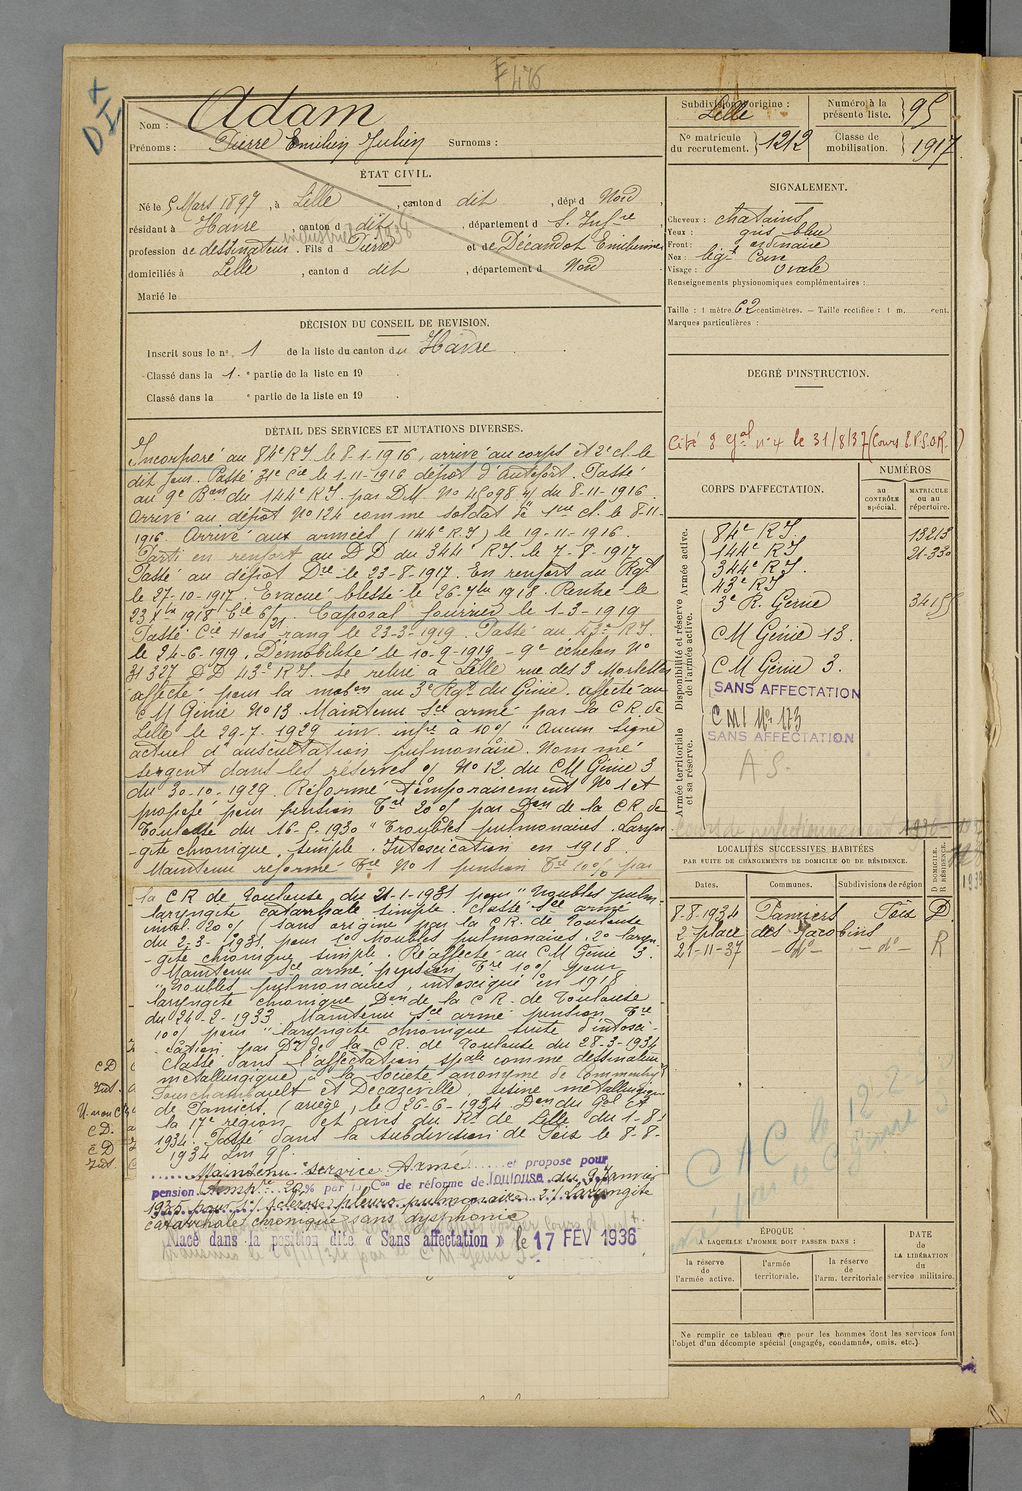 F 476
+
D I
Nom : Adam
Prénoms : Pierre Emilien Julien Surnoms :
ÉTAT CIVIL.
Né le 5 Mars 1897, à Lille, canton d dit, dépt d Nord,
résidant à Havre, canton d dit, département d S. Infre
industriel 1938
profession de dessinateur. Fils d Pierre et de Décandot Emilienne,
domiciliés à Lille, canton d dit, département d Nord
Marié le
DÉCISION DU CONSEIL DE REVISION.
Inscrit sous le no 1 de la liste du canton du Havre
Classé dans la 1. e partie de la liste en 19 .
Classé dans la e partie de la liste en 19 .
DÉTAIL DES SERVICES ET MUTATIONS DIVERSES.
Incorporé au 84e R.I. le 8-1-1916, arrivé au corps et 2e cl. le
dit jour. Passé 31e Cie le 1-11-1916 dépôt d'autefort. Passé
au 9e Bon du 144e R.I. par D.M. No 45098 du 8-11-1916.
Arrivé au dépôt No 124 comme soldat de 1re cl. le 8-11-
1916. Arrivé aux armées (144e R.I.) le 19-11-1916.
Parti en renfort au D D du 344e R.I. le 7-8-1917
Passé au dépôt Dre le 23-8-1917. En renfort au Rgt
le 27-10-1917. Evacué blessé le 26-7bre 1918. Rentré le
23 Xbre 1918 Cie 6/21. Caporal fourrier le 1-3-1919
Passé Cie Hors rang le 23-3-1919. Passé au 43e R.I.
le 24-6-1919. Démobilisé le 10-9-1919 - 9e échelon No
31327 D D 43e R.I. Se retire à Lille rue des 3 Mollettes
affecté pour la mobon au 3e Rgt du Génie. affecté au
C M Génie No 13. Maintenu Sce armé par la C.R. de
Lille le 29-7-1929 inv. infre à 10% "Aucun signe
actuel d'auscultation pulmonaire. Nommé
Sergent dans les réserves No 12 du C M Génie 3
du 30-10-1929. Réformé temporairement No 1 et
proposé pour pension Tre 20% par Don de la C.R. de
Toulouse du 16-5-1930 "Troubles pulmonaires. Laryn-
-gite chronique simple. Intoxication en 1918
Maintenu réformé Tre No 1 pension Tre 10% par
la C R de Toulouse du 21-1-1931 pour "troubles pulm-
laryngite catarrhale simple. Classé Sce armé
invt. 20% sans origine par la C.R. de Toulouse
du 2-3-1931 pour 1o troubles pulmonaires. 2o laryn-
-gite chronique simple. Réaffecté au C M Génie 3.
Maintenu Sce armé, pension Tre 10% pour
"troubles pulmonaires, intoxiqué en 1918
laryngite chronique Don de la C.R. de Toulouse
du 24-2-1933. Maintenu Sce armé pension Tre
10% pour "laryngite chronique suite d'intoxi-
-cation par Don de la C.R. de Toulouse du 28-3-1934
Classé dans l'affectation spale comme dessinateur
métallurgique à la Société anonyme de Commentry
Fourchambault et Decazeville usine métallurgique
de Pamiers. (ariège), le 26-6-1934 Don du Gal Ct
la 17e région et avis du Rt de Lille du 1-8-
1934. Passé dans la subdivision de Foix le 8-8-
1934
Maintenu service Armé et propose pour
pension 20% par la Con de réforme de Toulouse du 9 Janvier
1935 pour 1o sclérose pleuro pulmonaire 2o Laryngite
catarrhale chronique sans dysphonie
Placé dans la position dite « Sans affectation » le 17 FEV 1936
Subdivision d'origine : Lille
Numéro à la présente liste. 95
No matricule du recrutement. 1212
Classe de mobilisation. 1917
SIGNALEMENT.
Cheveux : chatains
Yeux : gris bleu
Front : ordinaire
Nez : légt Cave
Visage : ovale
Renseignements physionomiques complémentaires :
Taille : 1 mètre 62 centimètres. — Taille rectifiée : 1 m. cent.
Marques particulières :
DEGRÉ D'INSTRUCTION.
Cité O. Gal no 4 le 31/8/37 (Cours E.P.S.O.R.)
CORPS D'AFFECTATION.
NUMÉROS
au CONTRÔLE spécial.
MATRICULE ou au répertoire.
Armée active.
Disponibilité et réserve de l'armée active.
Armée territoriale et sa réserve.
84e R.I. 13213
144e R.I. 21-330
344e R.I.
43e R.I.
3e R. Génie 34155
C M Génie 13.
C M Génie 3.
SANS AFFECTATION
C M I No 173
SANS AFFECTATION
A S.
Cours de perfectionnement
LOCALITÉS SUCCESSIVES HABITÉES
PAR SUITE DE CHANGEMENTS DE DOMICILE OU DE RÉSIDENCE.
D. DOMICILE. R. RÉSIDENCE.
Dates. Communes. Subdivisions de région
8-8-1934 Pamiers Foix D.
2 place des Jacobins
21-11-37 - do - - do - R
C A C le 12-2-
ÉPOQUE
A LAQUELLE L'HOMME DOIT PASSER DANS :
la réserve de l'armée active.
l'armée territoriale.
la réserve de l'arm. territoriale
DATE de LA LIBÉRATION du service militaire.
Ne remplir ce tableau que pour les hommes dont les services font
l'objet d'un décompte spécial (engagés, condamnés, omis, etc.)